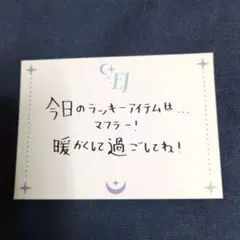 EJ
今日のラッキーアイテムは...
マフラー!
暖かくして過ごしてね!